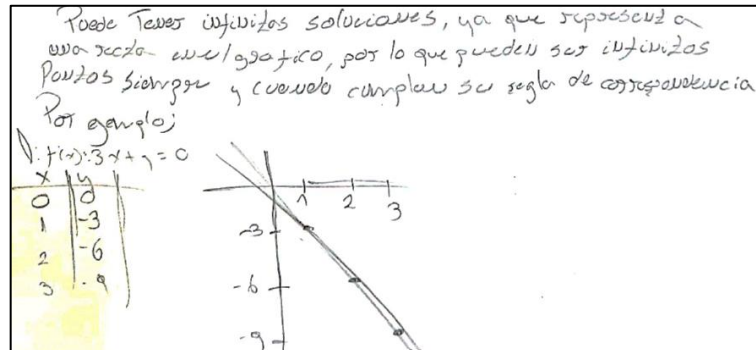 Puede Tener infinitas soluciones, ya que representa
una recta en el grafico, por lo que pueden ser infinitos
Puntos siempre y cuando cumplan su regla de correspondencia
Por ejemplo;
f(x): 3x + y = 0
x y
0 0
1 -3
2 -6
3 -9
1 2 3
-3
-6
-9